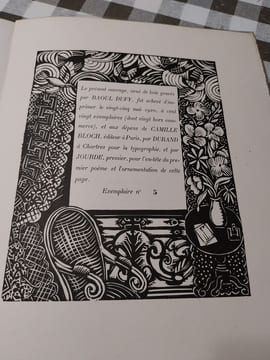 Le présent ouvrage, orné de bois gravés
par RAOUL DUFY, fut achevé d'im-
primer le vingt-cinq mai 1920, à cent
vingt exemplaires (dont vingt hors com-
merce), et aux dépens de CAMILLE
BLOCH, éditeur à Paris, par DURAND
à Chartres pour la typographie, et par
JOURDE, pressier, pour l'en-tête du pre-
mier poème et l'ornementation de cette
page.
Exemplaire nº 5